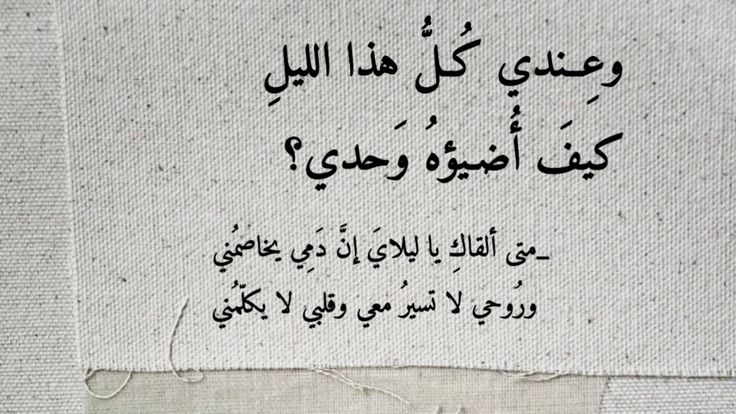 وعِـندي كُـلُّ هذا الليلِ
كيفَ أُضـيؤهُ وَحدي؟
_متى ألقاكِ يا ليلايَ إنَّ دَمِي يخاصمُني
ورُوحي لا تسيرُ معي وقلبي لا يكلّمُني